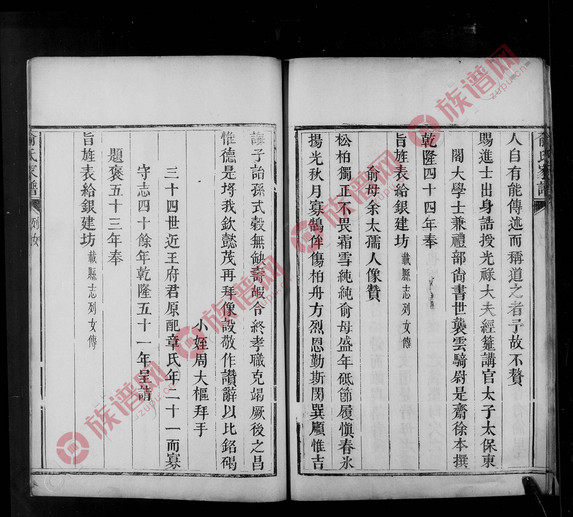 人自有能傳述而稱道之者予故不贅
賜進士出身誥授光祿大夫經筵講官太子太保東
閣大學士兼禮部尚書世襲雲騎尉是齋徐本撰
乾隆四十四年奉
旨旌表給銀建坊載縣志列女傳
俞母余太孺人像贊
松柏獨正不畏霜雪純純俞母盛年砥節履慎春氷
揚光秋月寡鵠俦傷柏舟方烈恩勤斯閔巽顧惟吉
訓子詒孫式穀無缺 嘏令終孝職克竭厥後之昌
惟德是 我欽懿茂再拜像設敬作讚辭以比銘碣
小姪周大樞拜手
三十四世近王府君原配章氏年二十一而寡
守志四十餘年乾隆五十一年呈請
題褒五十三年奉
旨旌表給銀建坊載縣志列女傳
俞氏家譜 列女
俞氏家譜
族谱网
zupu.cn